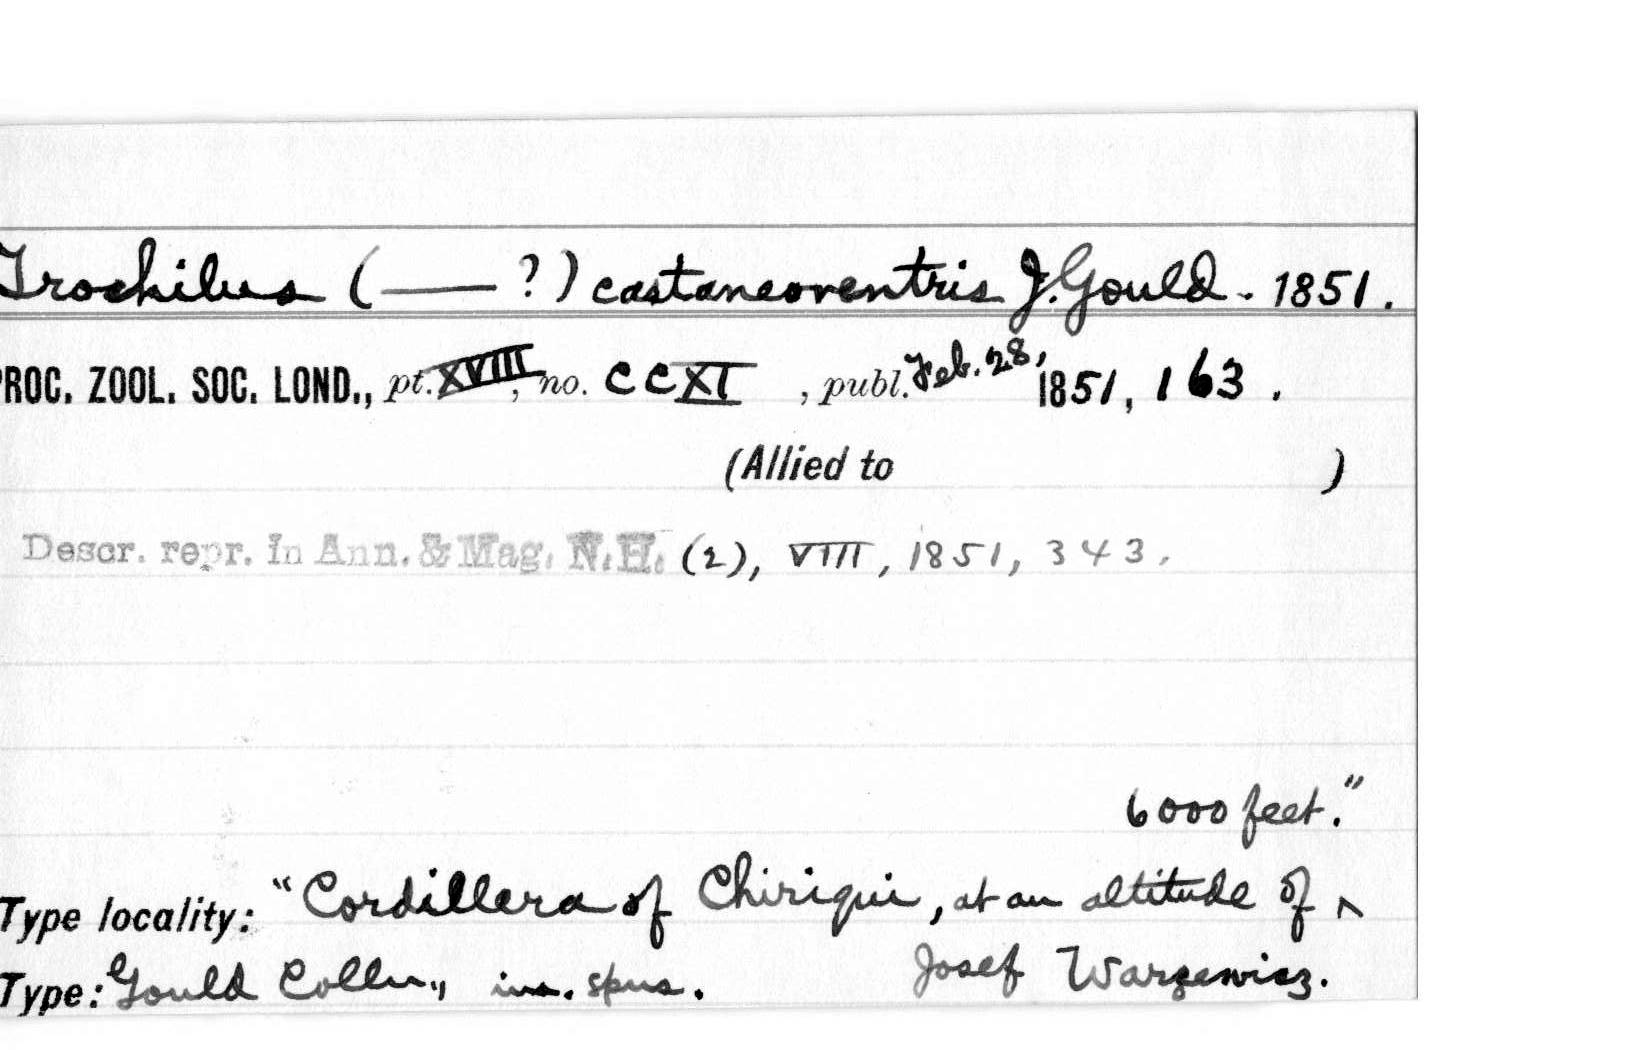 Trochilus (—— ?) castaneoventris J. Gould. 1851.
PROC. ZOOL. SOC. LOND., pt. XVIII, no. CCXI , publ. Feb. 28, 1851, 163 .
(Allied to )
Descr. repr. in Ann. & Mag. N.H. (2), VIII, 1851, 343.
6000 feet."
Type locality: "Cordillera of Chiriqui, at an altitude of ^
Type: Gould Colln., spns. Josef Warzewicz.